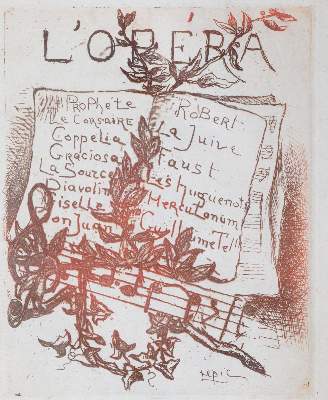 L'OPÉRA
Prophète
Le Corsaire
Coppelia
Graciosa
La Source
Diavolin
Giselle
on Juan
Robert
La Juive
Faust
Les Huguenots
Herculanum
Guillaume Tell
Lepic